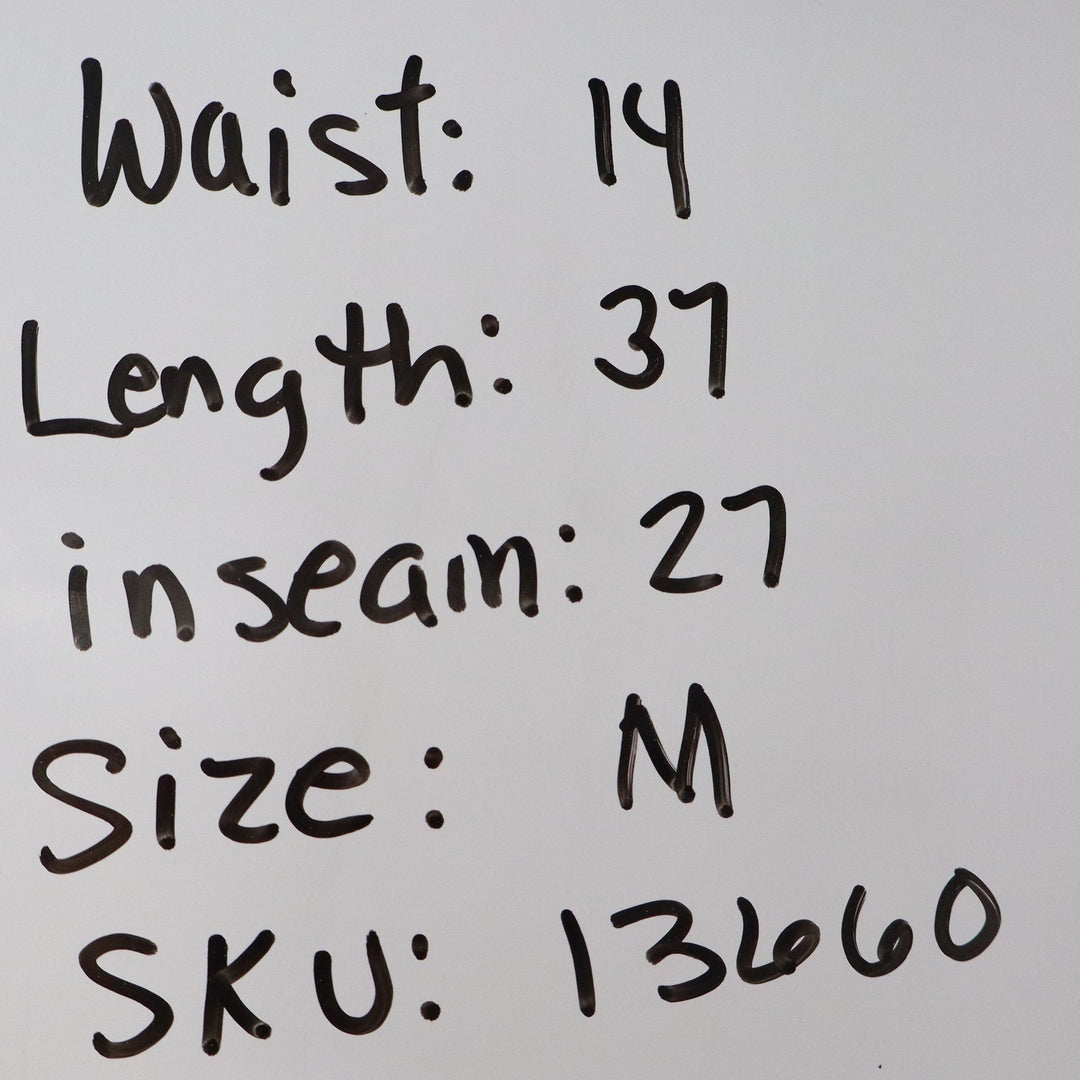 Waist: 14
Length: 37
inseam: 27
Size: M
SKU: 13660